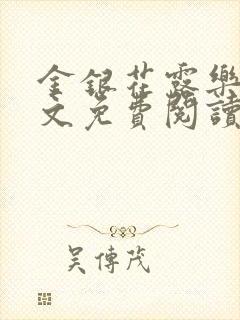 金銀花露樂
文免費閱讀
吴傳茂